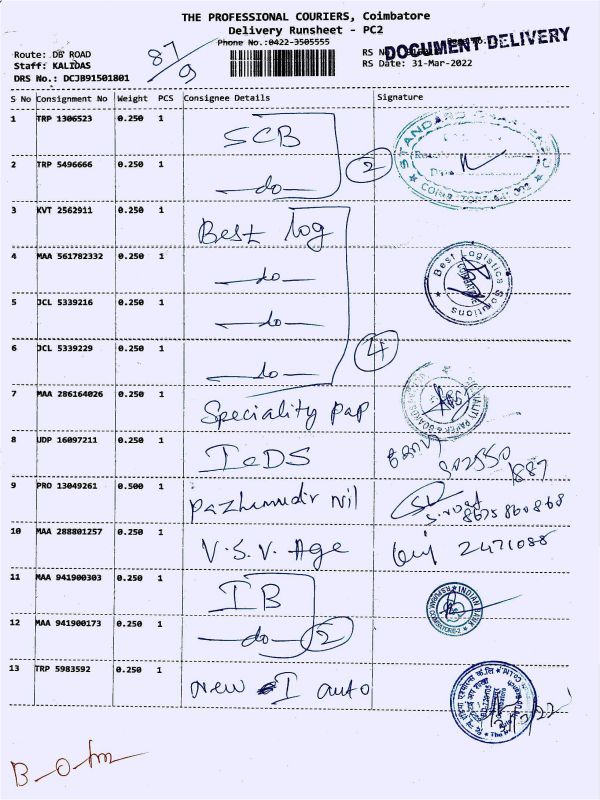 THE PROFESSIONAL COURIERS, Coimbatore
Delivery Runsheet - PC2
Phone No.:0422-3505555
DOCUMENT DELIVERY
Route: DB ROAD
87/9
RS No
Staff: KALIDAS
RS Date: 31-Mar-2022
DRS No.: DCJB91501801
S No Consignment No Weight PCS Consignee Details Signature
1 TRP 1306523 0.250 1 SCB
2 TRP 5496666 0.250 1 —do— 2
3 KVT 2562911 0.250 1 Best log
4 MAA 561782332 0.250 1 —do— Best Logistics Solutions
5 JCL 5339216 0.250 1 —do—
6 JCL 5339229 0.250 1 —do— 4
7 MAA 286164026 0.250 1 Speciality pap
8 UDP 16097211 0.250 1 IeDS
9 PRO 13049261 0.500 1 pazhamudir nil
10 MAA 288801257 0.250 1 V.S.V. Age 2471088
11 MAA 941900303 0.250 1 IB INDIAN BANK
12 MAA 941900173 0.250 1 —do— 2
13 TRP 5983592 0.250 1 new I auto